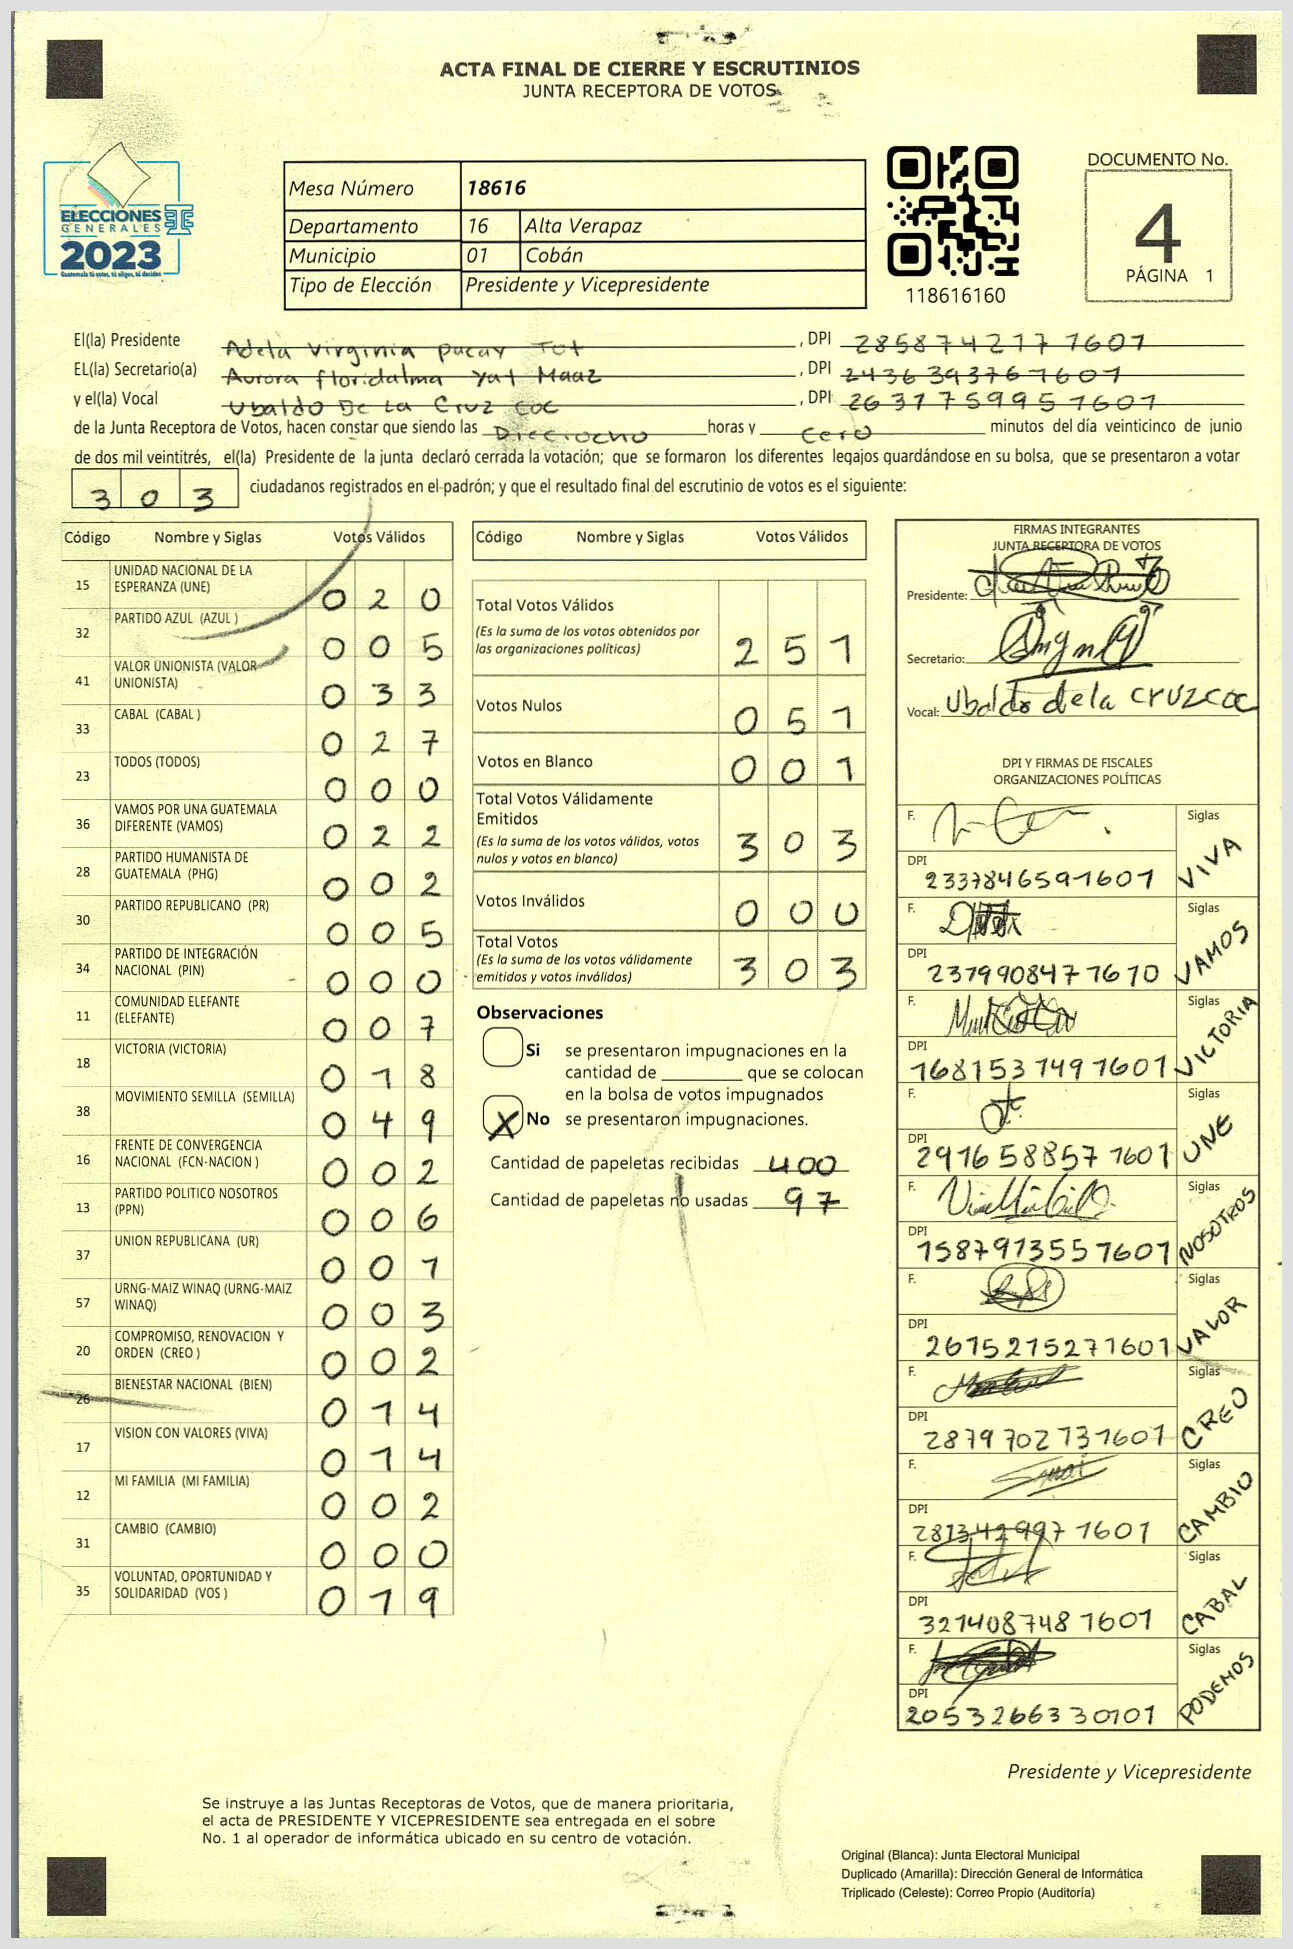 ACTA FINAL DE CIERRE Y ESCRUTINIOS
JUNTA RECEPTORA DE VOTOS
ELECCIONES
GENERALES
2023
Guatemala tú votas, tú eliges, tú decides
Mesa Número 18616
Departamento 16 Alta Verapaz
Municipio 01 Cobán
Tipo de Elección Presidente y Vicepresidente
118616160
DOCUMENTO No.
4
PÁGINA 1
El(la) Presidente Adela Virginia pacay Tot, DPI 2858742171601
EL(la) Secretario(a) Aurora floridalma yat Maaz, DPI 2436393761601
y el(la) Vocal Ubaldo De La Cruz coc, DPI 2631759951601
de la Junta Receptora de Votos, hacen constar que siendo las Dieciocho horas y cero minutos del día veinticinco de junio
de dos mil veintitrés, el(la) Presidente de la junta declaró cerrada la votación; que se formaron los diferentes legajos guardándose en su bolsa, que se presentaron a votar
303 ciudadanos registrados en el padrón; y que el resultado final del escrutinio de votos es el siguiente:
Código Nombre y Siglas Votos Válidos
15 UNIDAD NACIONAL DE LA ESPERANZA (UNE) 020
32 PARTIDO AZUL (AZUL ) 005
41 VALOR UNIONISTA (VALOR UNIONISTA) 033
33 CABAL (CABAL ) 027
23 TODOS (TODOS) 000
36 VAMOS POR UNA GUATEMALA DIFERENTE (VAMOS) 022
28 PARTIDO HUMANISTA DE GUATEMALA (PHG) 002
30 PARTIDO REPUBLICANO (PR) 005
34 PARTIDO DE INTEGRACIÓN NACIONAL (PIN) 000
11 COMUNIDAD ELEFANTE (ELEFANTE) 007
18 VICTORIA (VICTORIA) 018
38 MOVIMIENTO SEMILLA (SEMILLA) 049
16 FRENTE DE CONVERGENCIA NACIONAL (FCN-NACION ) 002
13 PARTIDO POLITICO NOSOTROS (PPN) 006
37 UNION REPUBLICANA (UR) 001
57 URNG-MAIZ WINAQ (URNG-MAIZ WINAQ) 003
20 COMPROMISO, RENOVACION Y ORDEN (CREO ) 002
26 BIENESTAR NACIONAL (BIEN) 014
17 VISION CON VALORES (VIVA) 014
12 MI FAMILIA (MI FAMILIA) 002
31 CAMBIO (CAMBIO) 000
35 VOLUNTAD, OPORTUNIDAD Y SOLIDARIDAD (VOS ) 019
Código Nombre y Siglas Votos Válidos
Total Votos Válidos
(Es la suma de los votos obtenidos por
las organizaciones políticas) 251
Votos Nulos 051
Votos en Blanco 001
Total Votos Válidamente
Emitidos
(Es la suma de los votos válidos, votos
nulos y votos en blanco) 303
Votos Inválidos 000
Total Votos
(Es la suma de los votos válidamente
emitidos y votos inválidos) 303
Observaciones
Si se presentaron impugnaciones en la
cantidad de ________ que se colocan
en la bolsa de votos impugnados
X No se presentaron impugnaciones.
Cantidad de papeletas recibidas 400
Cantidad de papeletas no usadas 97
FIRMAS INTEGRANTES
JUNTA RECEPTORA DE VOTOS
Presidente:
Secretario:
Vocal: Ubaldo de la cruz coc
DPI Y FIRMAS DE FISCALES
ORGANIZACIONES POLÍTICAS
F. Siglas VIVA
DPI 2337846591601
F. Siglas VAMOS
DPI 2379908471610
F. Siglas VICTORIA
DPI 1681537491601
F. Siglas UNE
DPI 2916588571601
F. Siglas NOSOTROS
DPI 1587913551601
F. Siglas VALOR
DPI 2615215271601
F. Siglas CREO
DPI 2879702731601
F. Siglas CAMBIO
DPI 2813429971601
F. Siglas CABAL
DPI 3214087481601
F. Siglas PODEMOS
DPI 2053266330101
Presidente y Vicepresidente
Se instruye a las Juntas Receptoras de Votos, que de manera prioritaria,
el acta de PRESIDENTE Y VICEPRESIDENTE sea entregada en el sobre
No. 1 al operador de informática ubicado en su centro de votación.
Original (Blanca): Junta Electoral Municipal
Duplicado (Amarilla): Dirección General de Informática
Triplicado (Celeste): Correo Propio (Auditoría)